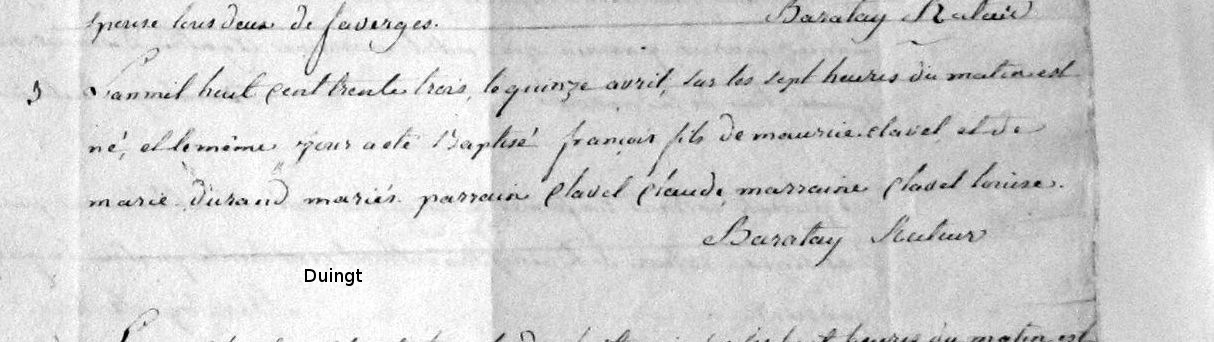 epouse tous deux de faverges. Baratay Recteur
5 L'an mil huit cent trente trois, le quinze avril, sur les sept heures du matin est
né, et le même jour a été Baptisé françois fils de maurice clavel, et de
marie durand mariés. parrain Clavel Claude, marraine Clavel louise.
Baratay Recteur
Duingt
heures du matin est